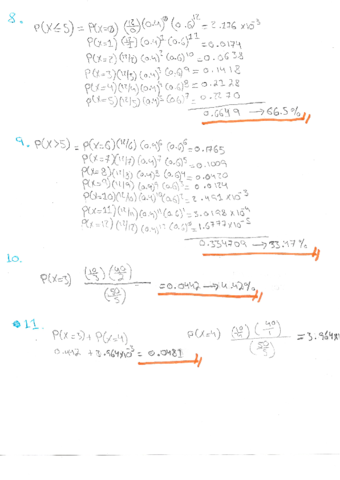 8. P(X≤5) = P(X=0) (12/0) (0.4)^0 (0.6)^12 = 2.176·10^-3
P(X=1) (12/1) (0.4)^1 (0.6)^11 = 0.0174
P(X=2) (12/2) (0.4)^2 (0.6)^10 = 0.0638
P(X=3) (12/3) (0.4)^3 (0.6)^9 = 0.1418
P(X=4) (12/4) (0.4)^4 (0.6)^8 = 0.2128
P(X=5) (12/5) (0.4)^5 (0.6)^7 = 0.2270
0.6649 → 66.5%
9. P(X>5) = P(X=6) (12/6) (0.4)^6 (0.6)^6 = 0.1765
P(X=7) (12/7) (0.4)^7 (0.6)^5 = 0.1009
P(X=8) (12/8) (0.4)^8 (0.6)^4 = 0.0420
P(X=9) (12/9) (0.4)^9 (0.6)^3 = 0.0124
P(X=10) (12/10) (0.4)^10 (0.6)^2 = 2.491·10^-3
P(X=11) (12/11) (0.4)^11 (0.6)^1 = 3.0198·10^-4
P(X=12) (12/12) (0.4)^12 (0.6)^0 = 1.6777·10^-5
0.334709 → 33.47%
10.
P(X=3) (10/3) (40/2) / (50/5) = 0.0442 → 4.42%
11.
P(X=3) + P(X=4) P(X=4) (10/4) (40/1) / (50/5) = 3.964×1
0.442 + 3.964×10^-3 = 0.0481